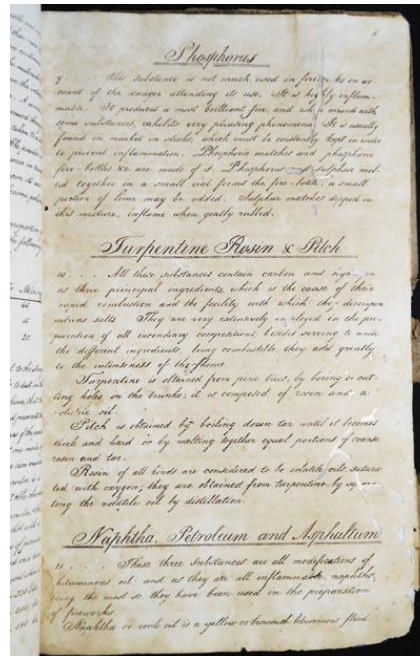 Phosphorus
9. . . . This substance is not much used in fireworks on ac-
count of the danger attending its use. It is highly inflam-
mable. It produces a most brilliant fire, and when mixed with
some substances, exhibits very pleasing phenomena. It is usually
found in market in sticks, which must be constantly kept in water
to prevent inflammation. Phosphoric matches and phosphoric
fire-bottles &c are made of it. Phosphorus and sulphur mel-
ted together in a small vial forms the fire-bottle, a small
portion of lime may be added. Sulphur matches dipped in
this mixture, inflame when gently rubbed.
Turpentine Rosin & Pitch
10. . . . All these substances contain carbon and
as their principal ingredients, which is the cause of their
rapid combustion and the facility with which they decompose
salts. They are very extensively employed in the pre-
paration of all incendiary compositions, besides serving to unite
the different ingredients, being combustible, they add greatly
to the intenseness of the flame.
Turpentine is obtained from pine trees, by boring or cut-
ting holes in the trunks; it is composed of rosin and a
volatile oil.
Pitch is obtained by boiling down tar until it becomes
thick and hard or by melting together equal portions of coarse
rosin and tar.
Rosin of all kinds are considered to be volatile oils satura-
ted with oxygen; they are obtained from turpentine, by
the volatile oil by distillation.
Naphtha, Petroleum and Asphaltum
11. . . . These three substances are all modifications of
bituminous oil and as they are all inflammable, naphtha
being the most so, they have been used in the preparation
of fireworks.
Naphtha or rock oil is a yellow or brownish bituminous fluid